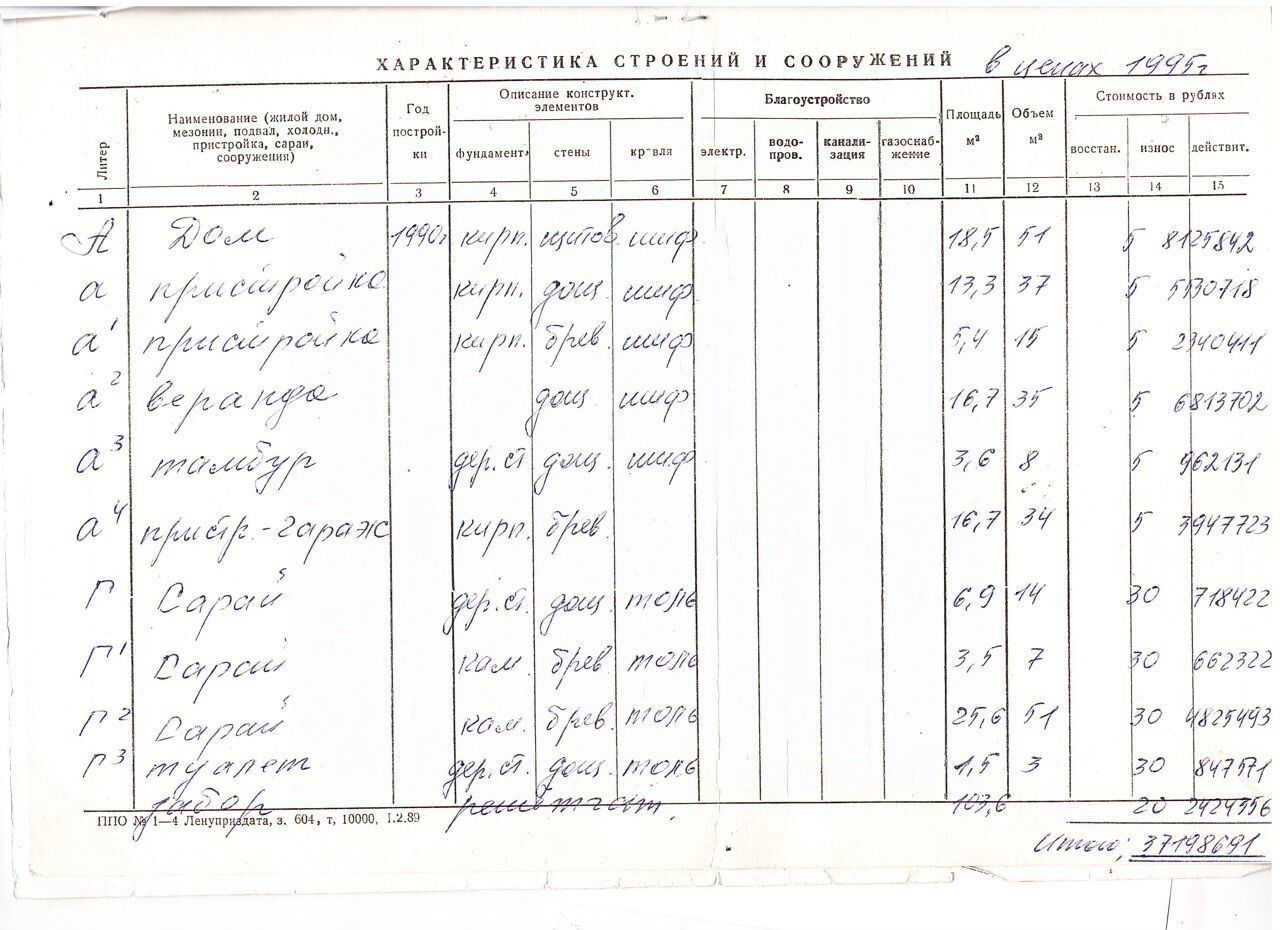 ХАРАКТЕРИСТИКА СТРОЕНИЙ И СООРУЖЕНИЙ в ценах 1995г
Литер
Наименование (жилой дом, мезонин, подвал, холодн., пристройка, сараи, сооружения)
Год построй-ки
Описание конструкт. элементов
Благоустройство
Площадь м²
Объем м³
Стоимость в рублях
фундамент стены кровля электр. водо-пров. канали-зация газоснаб-жение восстан. износ действит.
1 2 3 4 5 6 7 8 9 10 11 12 13 14 15
А Дом 1990г кирп. щитов. шиф. 18,5 51 5 8125842
а пристройка кирп. дощ. шиф. 13,3 37 5 5530718
а1 пристройка кирп. брев. шиф 5,4 15 5 2340411
а2 веранда дощ. шиф 16,7 35 5 6813702
а3 тамбур дер.ст дощ. шиф 3,6 8 5 962131
а4 пристр.-гараж кирп. брев. 16,7 34 5 3947723
Г Сарай дер.ст. дощ. толь 6,9 14 30 718422
Г1 Сарай кам. брев толь 3,5 7 30 662322
Г2 Сарай кам. брев. толь 25,6 51 30 4825493
Г3 туалет дер.ст. дощ. толь 1,5 3 30 847571
забор решётчат. 103,6 20 2424356
ППО № 1—4 Ленуприздата, з. 604, т, 10000, 1.2.89
Итого: 37198691